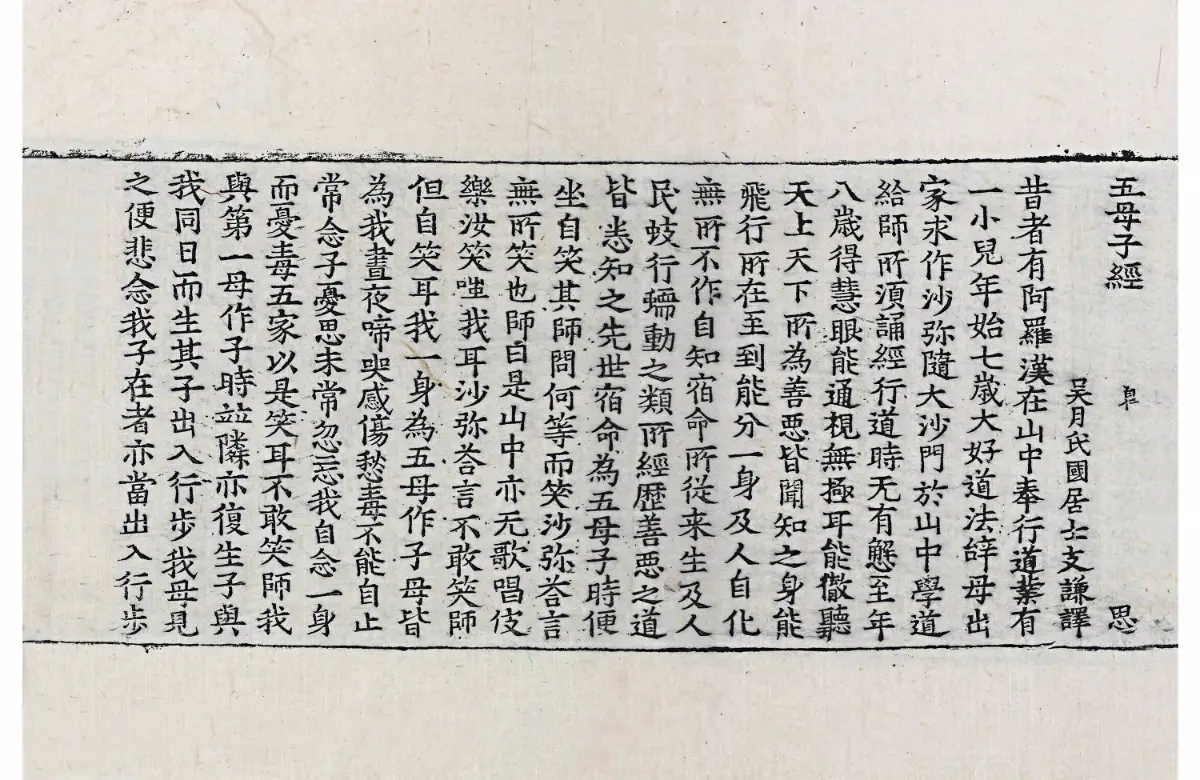 五母子經 思
吴月氏國居士支謙譯
昔者有阿羅漢在山中奉行道業有
一小兒年始七歲大好道法辝母出
家求作沙弥隨大沙門於山中學道
給師所湏誦經行道時无有懈至年
八歲得慧眼能通視無極耳能徹聽
天上天下所為善惡皆聞知之身能
飛行所在至到能分一身及人自化
無所不作自知宿命所從来生及人
民蚑行蠕動之類所經歷善惡之道
皆悉知之先世宿命為五母子時便
坐自笑其師問何等而笑沙弥荅言
無所笑也師曰是山中亦无歌唱伎
樂汝笑嗤我耳沙弥荅言不敢笑師
但自笑耳我一身為五母作子母皆
為我晝夜啼哭感傷愁毒不能自止
常念子憂思未常忽忘我自念一身
而憂毒五家以是笑耳不敢笑師我
與第一母作子時並隣亦復生子與
我同日而生其子出入行步我母見
之便悲念我子在者亦當出入行步